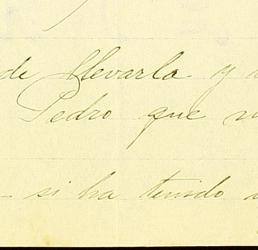 de llevarla y
Pedro que
- si ha tenido